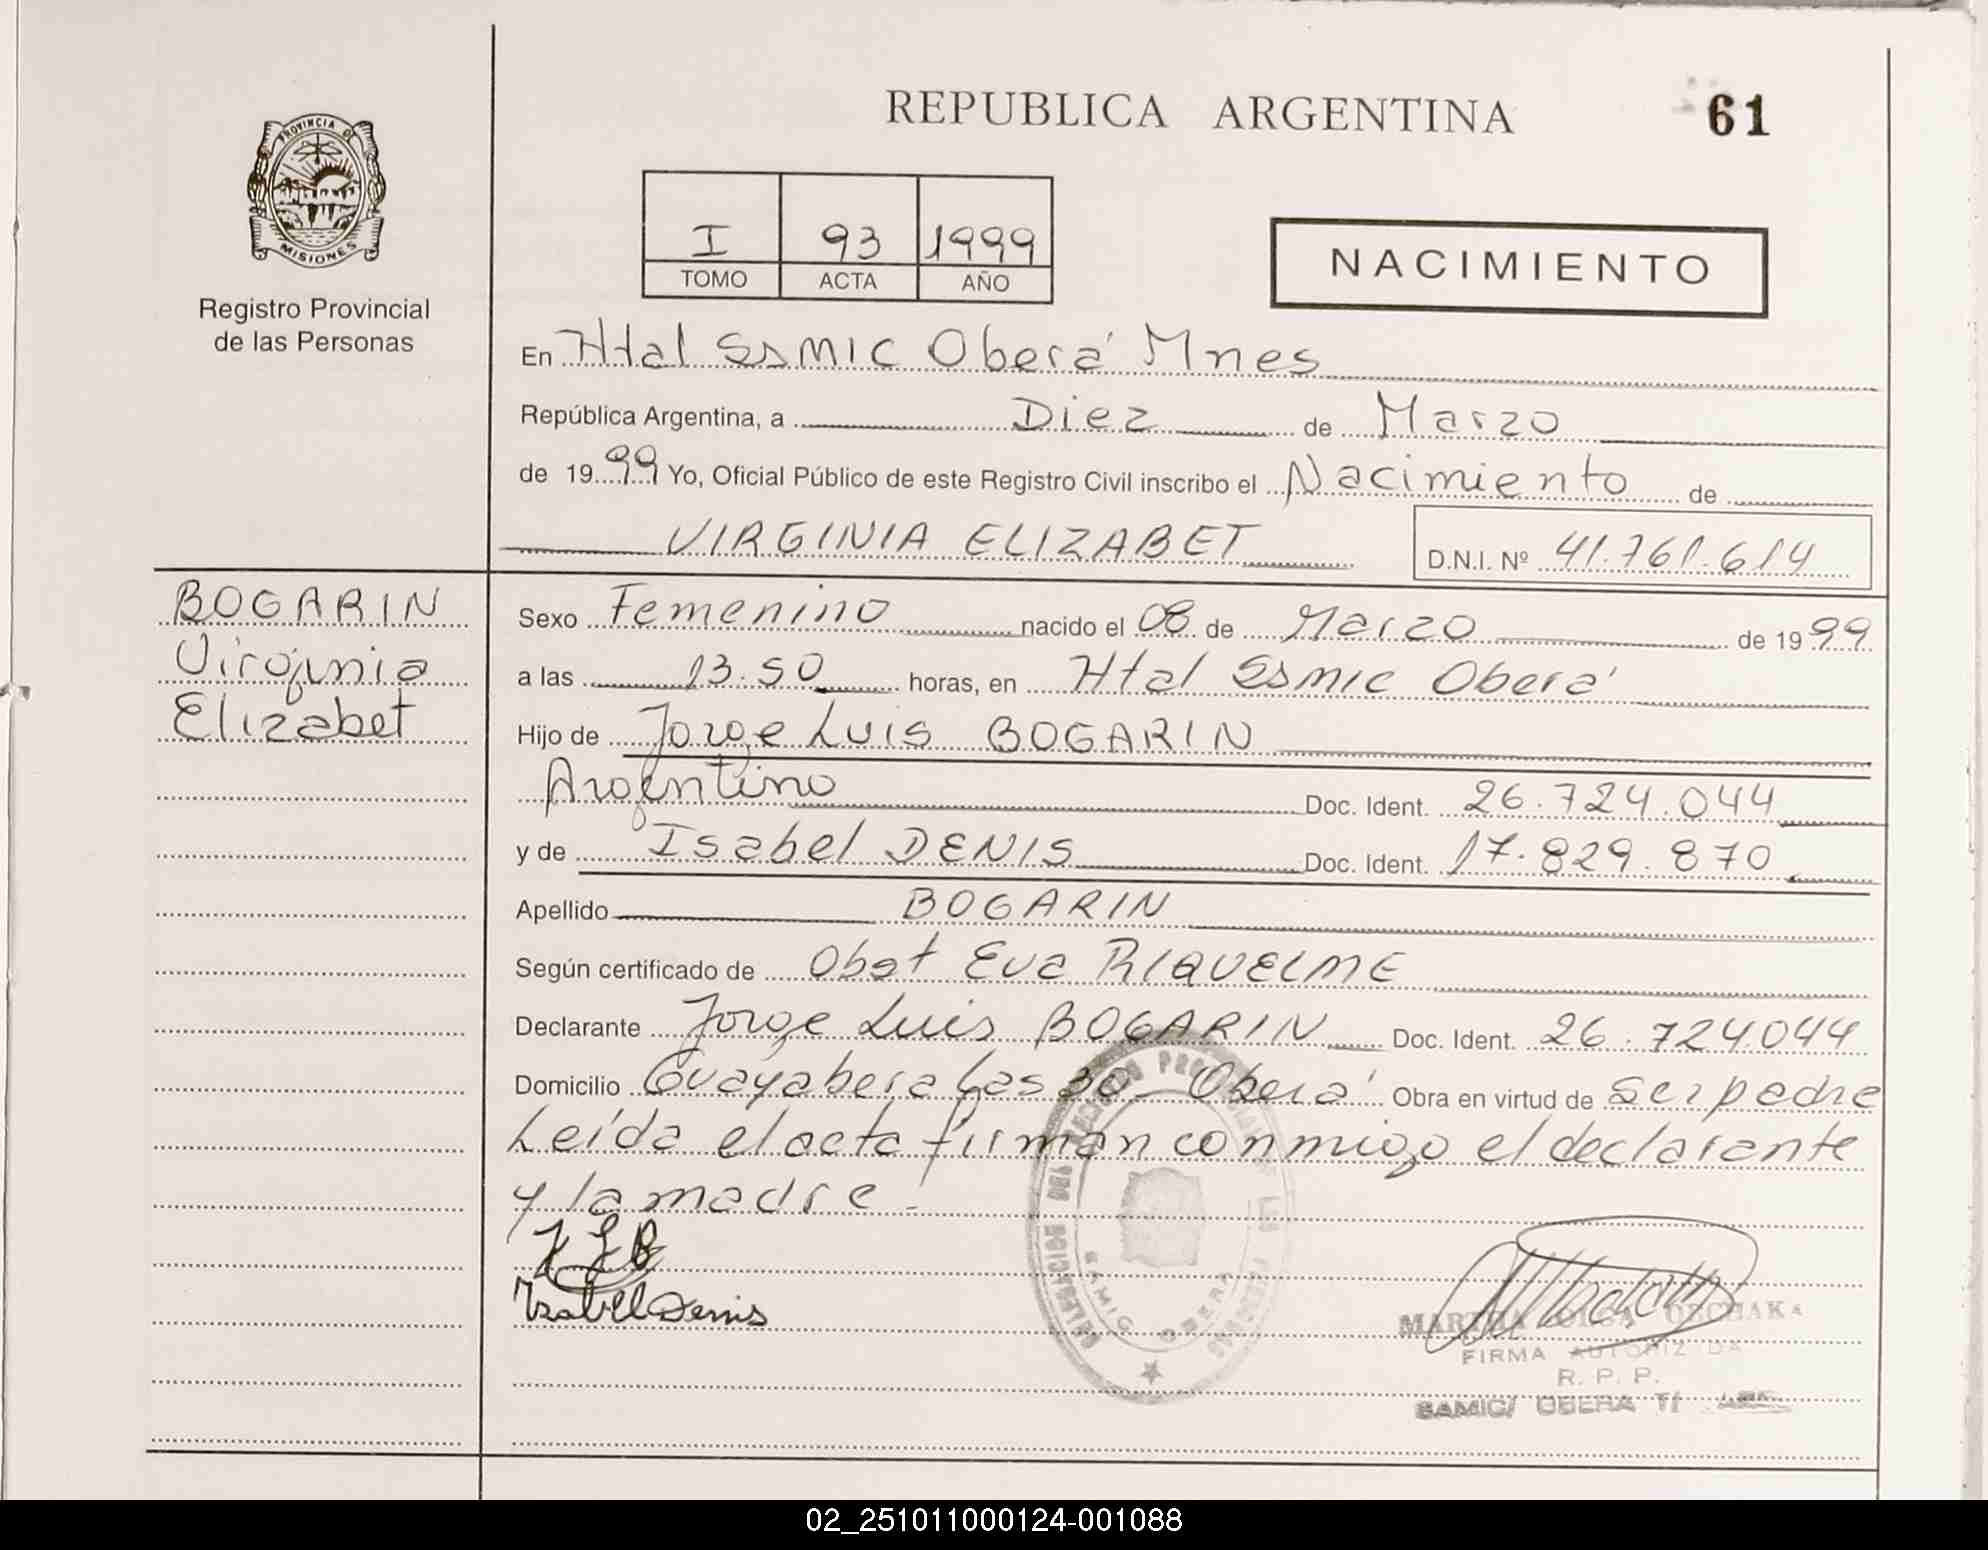 REPUBLICA ARGENTINA
61
PROVINCIA DE
MISIONES
Registro Provincial
de las Personas
I 93 1999
TOMO ACTA AÑO
NACIMIENTO
En Htal SsMIC Oberá Mnes
República Argentina, a Diez de Marzo
de 1999 Yo, Oficial Público de este Registro Civil inscribo el Nacimiento de
VIRGINIA ELIZABET D.N.I. Nº 41.761.614
BOGARIN
Virginia
Elizabet
Sexo Femenino nacido el 08 de Marzo de 1999
a las 13.50 horas, en Htal SsMIC Oberá
Hijo de Jorge Luis BOGARIN
Argentino Doc. Ident. 26.724.044
y de Isabel DENIS Doc. Ident. 17.829.870
Apellido BOGARIN
Según certificado de Obst Eva RIQUELME
Declarante Jorge Luis BOGARIN Doc. Ident. 26.724044
Domicilio Guayabera Cas 30 - Oberá Obra en virtud de ser padre
Leída el acta firman conmigo el declarante
y la madre.
JLB
Isabel Denis
DELEGACION DEL REGISTRO PROVINCIAL DE LAS PERSONAS
SAMIC OBERA
MARTHA OLGA
FIRMA AUTORIZADA
R. P. P.
SAMIC/ OBERA
02_251011000124-001088